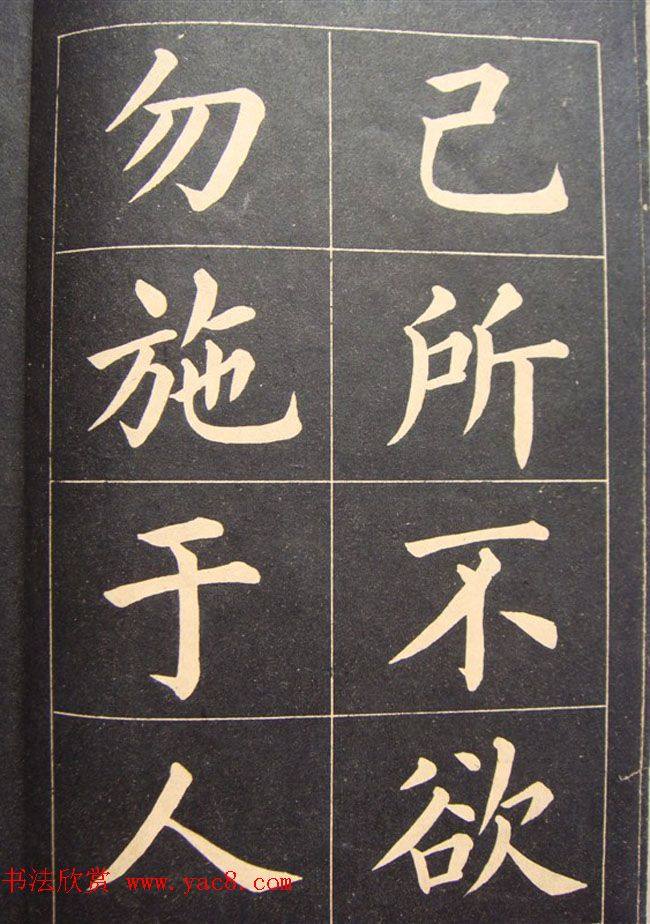 己所不欲
勿施于人
书法欣赏 www.yac8.com